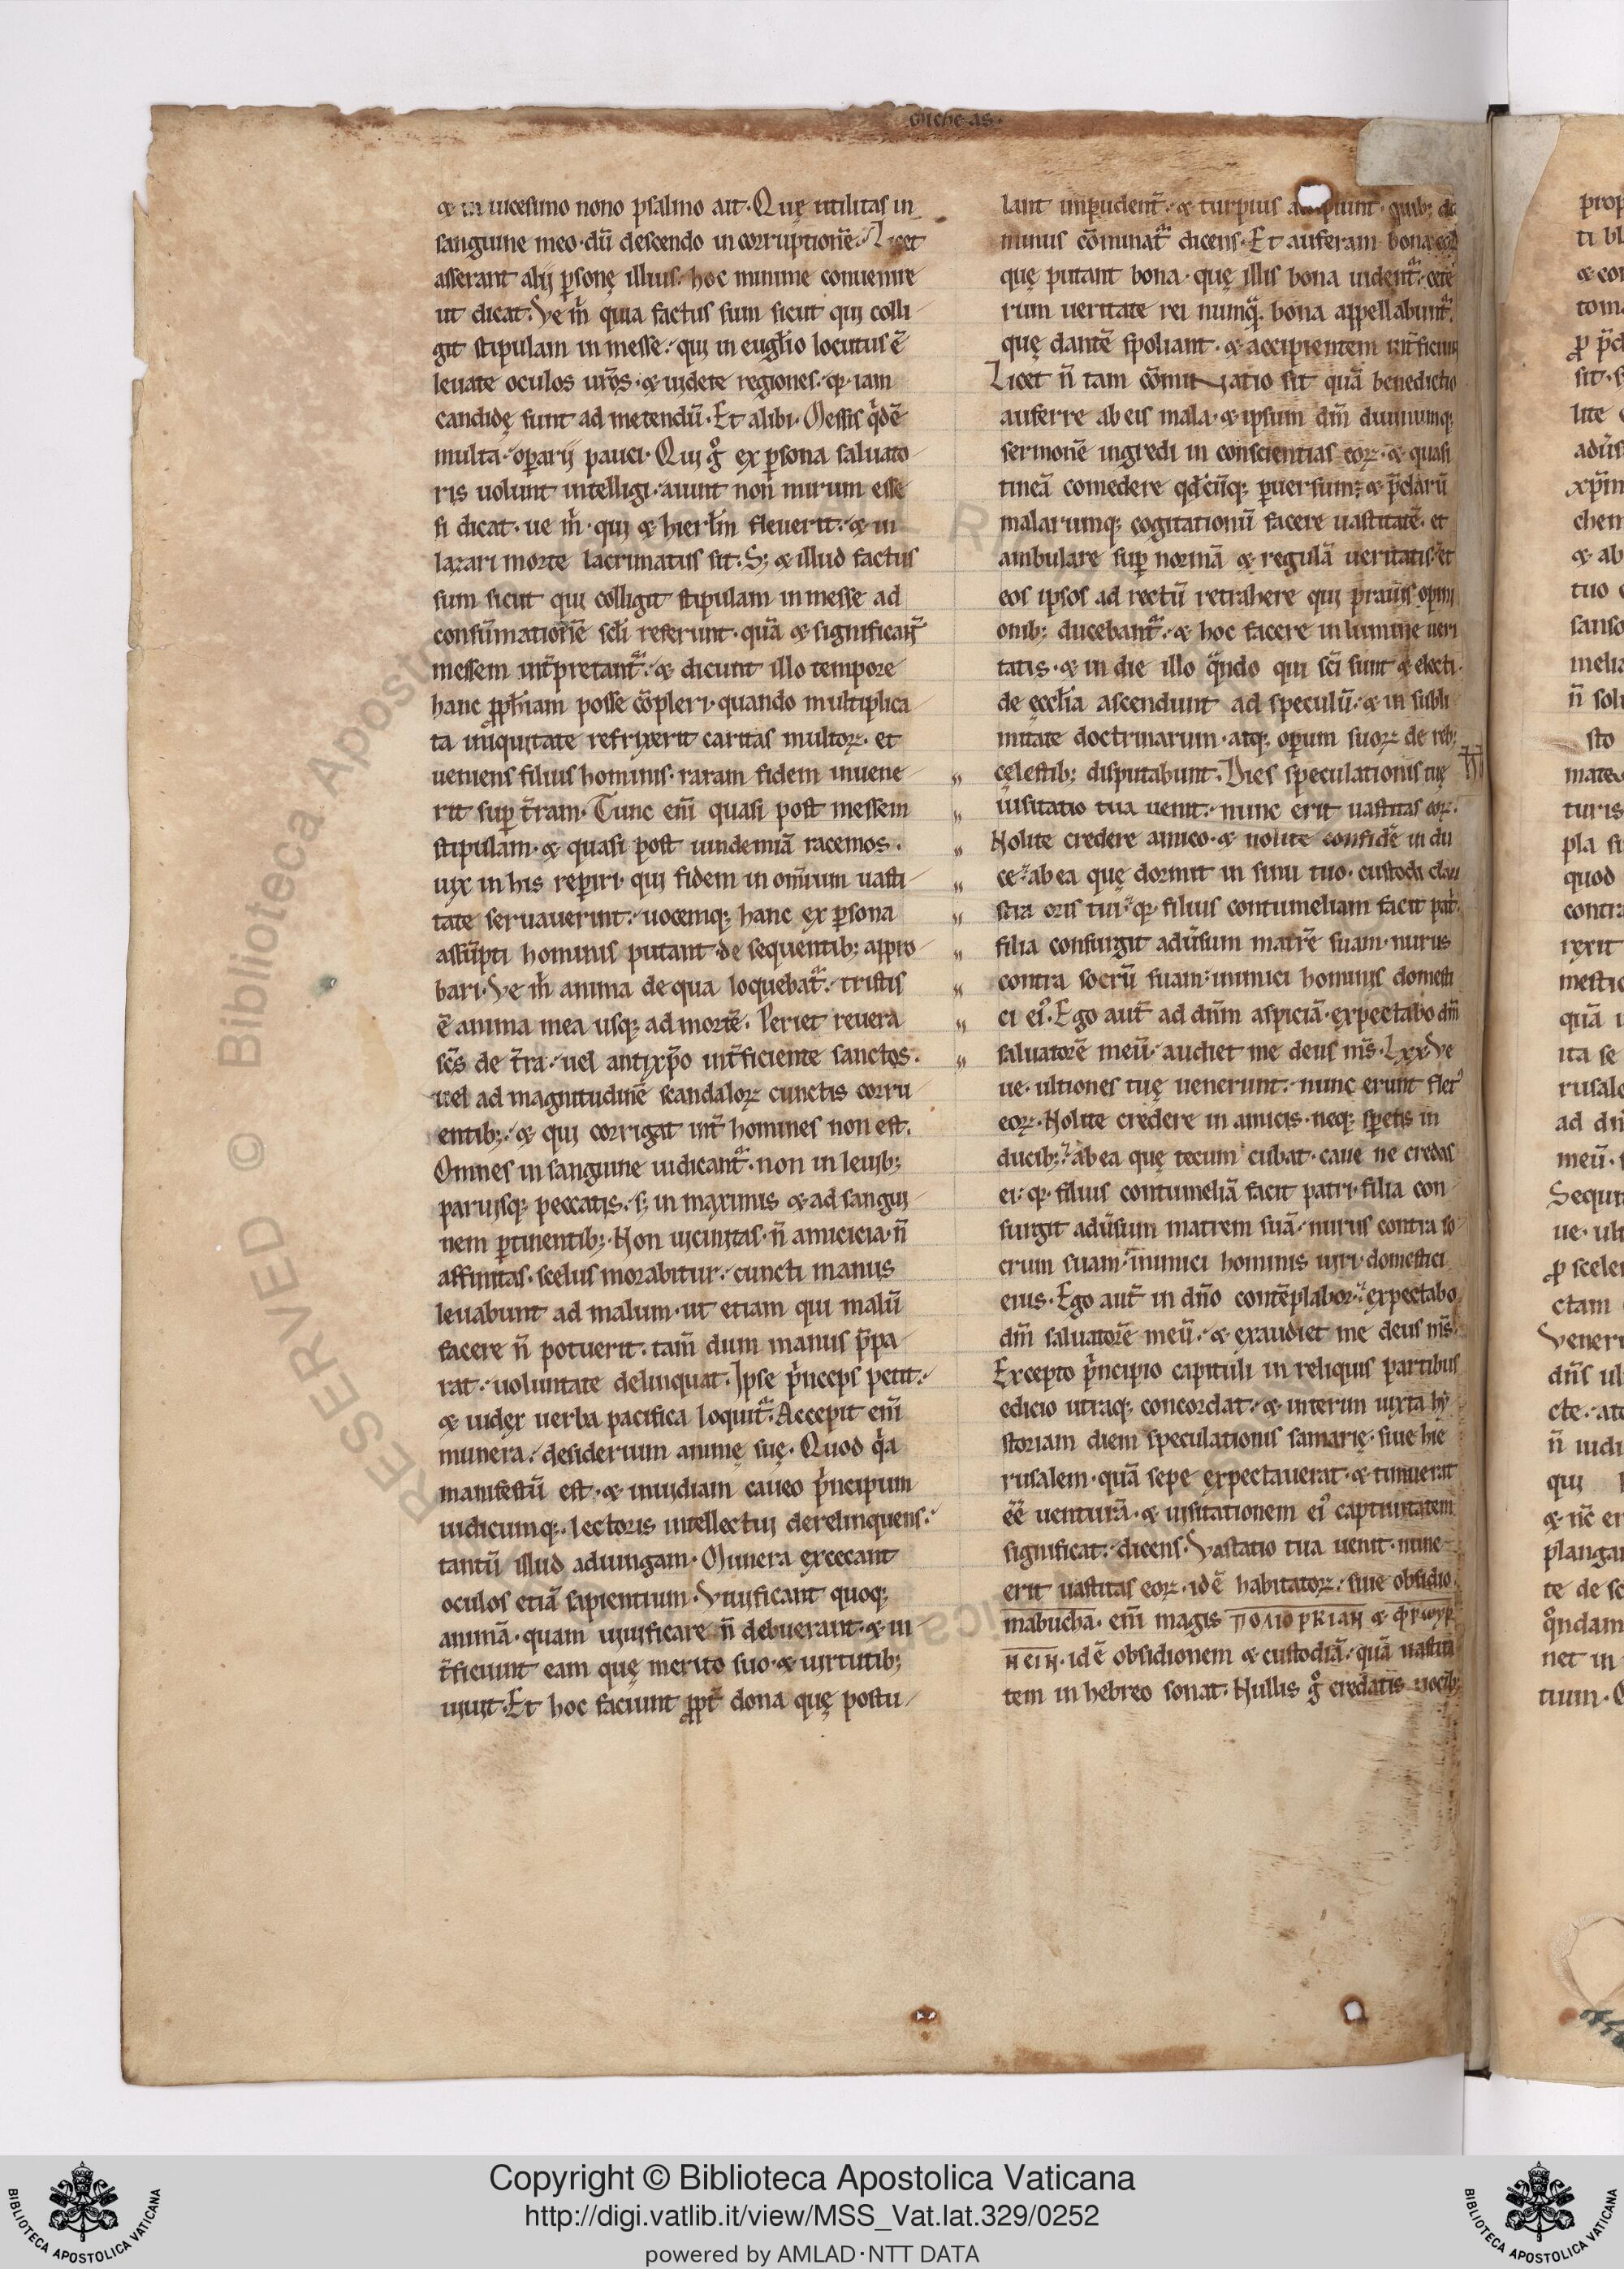 micheas.
& in uicesimo nono psalmo ait. Quę utilitas in
sanguine meo. dū descendo in corruptionē. Licet
asserant alij ꝑsonę illius. hoc minime conuenire
ut dicat. Ve m̄ quia factus sum sicut qui colli
git stipulam in messe. qui in eugłio locutus ē
leuate oculos ur̄os. & uidete regiones. q̇ iam
candidę sunt ad metendū. Et alibi. Messis q̇dē
multa. oꝑarij pauci. Qui g̊ ex ꝑsona saluato
ris uolunt intelligi. aiunt non mirum esse
si dicat. ue m̄. qui & hierłm fleuerit. & in
lazari morte lacrimatus sit. S; & illud factus
sum sicut qui colligit stipulam in messe ad
consūmationē scłi referunt. quā & significar̄
messem int̄pretant᷑. & dicunt illo tempore
hanc ꝓph̄iam posse cōpleri. quando multiplica
ta iniquitate refrixerit caritas multoꝝ. et
ueniens filius hominis. raram fidem inuene
rit suꝑ t̄ram. Tunc eni᷑ quasi post messem
stipulam. & quasi post uindemiā racemos.
uix in his reꝑiri. qui fidem in omnium uasti
tate seruauerint. uocemq; hanc ex ꝑsona
assūpti hominis putant de sequentib; appro
bari. Ve m̄ anima de qua loquebat᷑. tristis
ē anima mea usq; ad mortē. Periet reuera
sc̄s de t̄ra. uel antixp̄o int̄ficiente sanctos.
uel ad magnitudinē scandaloꝝ cunctis corru
entib;. & qui corrigat int̄ homines non est.
Omnes in sanguine iudicant᷑. non in leuib;
paruisq; peccatis. s; in maximis & ad sangui
nem ꝑtinentib;. Non uicinitas. n̄ amicicia. n̄
affinitas. scelus morabitur. cuncti manus
leuabunt ad malum. ut etiam qui malū
facere n̄ potuerit. tam̄ dum manus p̄pa
rat. uoluntate delinquat. Ipse ṗnceps petit.
& iudex uerba pacifica loquit᷑. Accepit eni᷑
munera. desiderium animę suę. Quod q̇a
manifestū est. & inuidiam caueo ṗncipum
iudicumq;. lectoris intellectui derelinquens.
tantū illud adiungam. Munera excecant
oculos etiā sapientium. Viuificant quoq;
animā. quam uiuificare n̄ debuerant. & in
t̄ficiunt eam quę merito suo. & uirtutib;
uiuit. Et hoc faciunt ꝓpt̄ dona quę postu
lant impudent̄. & turpius accipiunt. quib; do
minus cōminat᷑ dicens. Et auferam bona eoꝝ
quę putant bona. quę illis bona uident᷑. cete
rum ueritate rei numq̄. bona appellabunt᷑.
quę dantē spoliant. & accipientem int̄ficiunt
Licet n̄ tam cōminatio sit quā benedictio
auferre ab eis mala. & ipsum dm̄ diuinumq;
sermonē ingredi in conscientias eoꝝ. & quasi
tineā comedere qdcūq; ꝑuersum. & p̄clarū
malarumq; cogitationū facere uastitatē. et
ambulare suꝑ normā & regulā ueritatis. et
eos ipsos ad rectū retrahere qui prauis opini
onib; ducebant᷑. & hoc facere in lumine ueri
tatis. & in die illo q̄ndo qui sc̄i sunt & electi
de ęccłia ascendunt ad speculū. & in subli
mitate doctrinarum. atq; oꝑum suoꝝ de reb;
cęlestib; disputabunt. Dies speculationis tuę
uisitatio tua uenit. nunc erit uastitas eoꝝ.
Nolite credere amico. & nolite confidē in du
ce. ab ea quę dormit in sinu tuo. custodi clau
stra oris tui. q̇ filius contumeliam facit pat̄.
filia consurgit adūsum matrē suam. nurus
contra socrū suam. inimici hominis domesti
ci ei᷒. Ego aut̄ ad dn̄m aspiciā. expectabo dm̄
saluatorē meū. audiet me deus ms̄. Lxx. Ve
ue. ultiones tuę uenerunt. nunc erunt flet᷒
eoꝝ. Nolite credere in amicis. neq; speetis in
ducib;. ab ea quę tecum cubat. caue ne credas
ei. q̇ filius contumeliā facit patri. filia con
surgit adūsum matrem suā. nurus contra so
crum suam. inimici hominis uiri. domestici
eius. Ego aut̄ in dn̄o contēplabor. expectabo
dm̄ saluatorē meū. & exaudiet me deus ms̄.
Excepto ṗncipio capituli in reliquis partibus
edicio utraq; concordat. & interim iuxta hy
storiam diem speculationis samarię. siue hie
rusalem. quā sepe expectauerat. & timuerat
eē uenturā. & uisitationem ei᷒ captiuitatem
significat. dicens. Vastatio tua uenit. nunc
erit uastitas eoꝝ. idē habitatoꝝ. siue obsidio.
mabucha. eni᷑ magis ΠΟΛΙΟΡΚΙΑΝ & ΦΡΟΥΡ
ΗΕΙΝ. idē obsidionem & custodiā. quā uastita
tem in hebreo sonat. Nullis g̊ credatis uocib;
ti bl
pla si
quod
contra
rexit
mestic
quā u
ita se
rusale
ad dn̄
meū. s
Sequit
ue. ult
ꝓ sceler
ctam
Venert
dn̄s ul
cte. at
n̄ iudi
qui
& nc̄ er
plangat
te de sc
q̊ndam
net in
tium. Q
RESERVED © Biblioteca Apostolica Vaticana
Copyright © Biblioteca Apostolica Vaticana
http://digi.vatlib.it/view/MSS_Vat.lat.329/0252
powered by AMLAD·NTT DATA
BIBLIOTECA APOSTOLICA VATICANA
BIBLIOTECA APOSTOLICA VATICANA